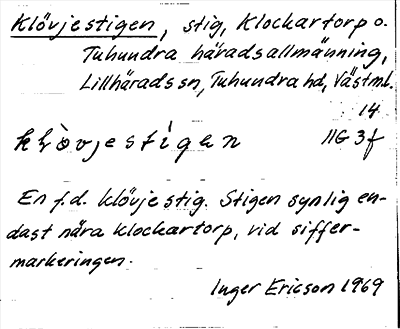 Klövjestigen, stig, Klockartorp o.
Tuhundra häradsallmänning,
Lillhärads sn, Tuhundra hd, Västml.
14
klòvjestígen 11G 3f
En f.d. klövjestig. Stigen synlig en-
dast nära Klockartorp, vid siffer-
markeringen.
Inger Ericson 1969